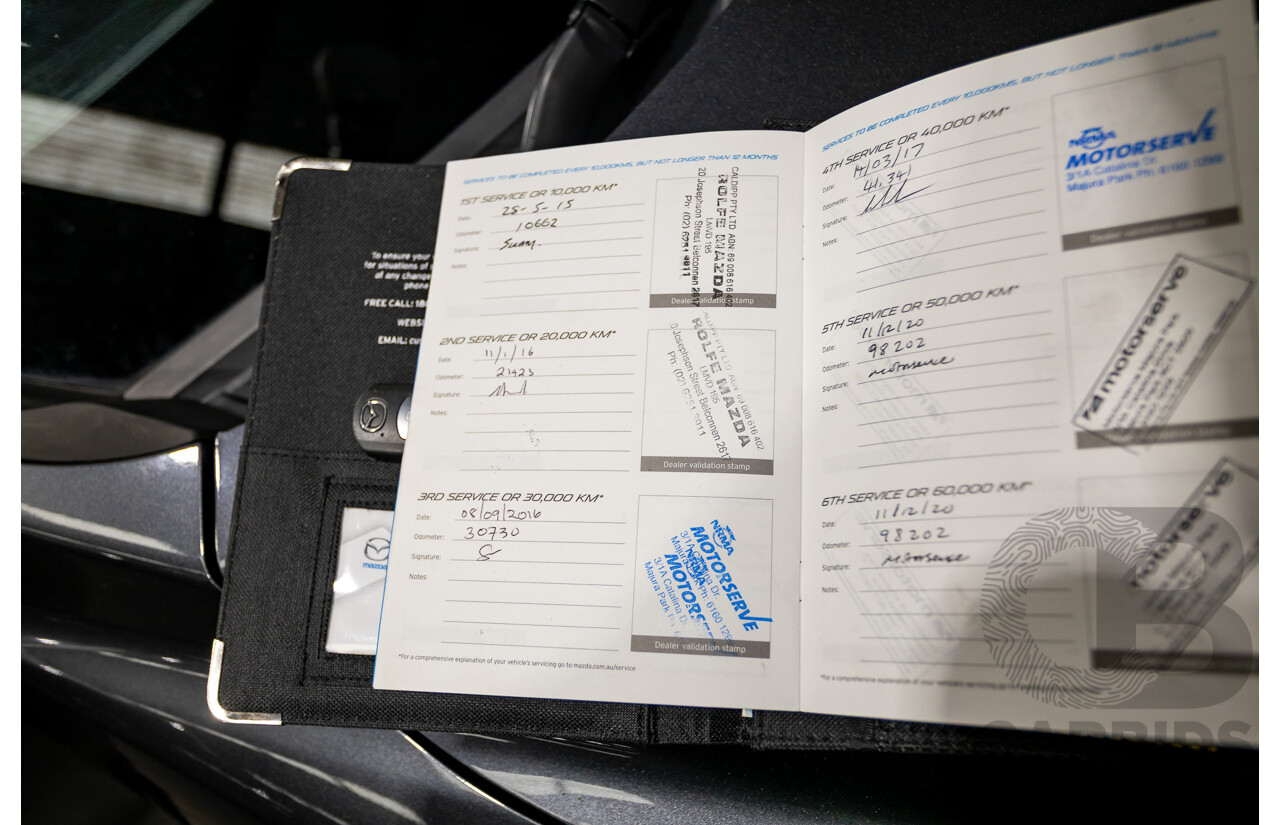 To ensure your
for situations of
of any change
phone
FREE CALL: 18
WEBSI
EMAIL: cus
mazda
SERVICES TO BE COMPLETED EVERY 10,000KMS, BUT NOT LONGER THAN 12 MONTHS
1ST SERVICE OR 10,000 KM*
Date: 25-5-15
Odometer: 10662
Signature:
Notes:
CALDIPP PTY LTD ABN: 89 008 616
ROLFE MAZDA
LMVD 195
20 Josephson Street Belconnen 261
Ph: (02) 6251 4811
Dealer validation stamp
2ND SERVICE OR 20,000 KM*
Date: 11/1/16
Odometer: 21423
Signature:
Notes:
PTY LTD ABN 89 008 616 402
ROLFE MAZDA
LMVD 195
Josephson Street Belconnen 2617
Ph: (02)
Dealer validation stamp
3RD SERVICE OR 30,000 KM*
Date: 08/09/2016
Odometer: 30730
Signature:
Notes:
NRMA
MOTORSERVE
3/1A Catalina Dr.
Majura Park Ph: 6160
Dealer validation stamp
*For a comprehensive explanation of your vehicle's servicing go to mazda.com.au/service
SERVICES TO BE COMPLETED EVERY 10,000KMS, BUT NOT LONGER THAN 12 MONTHS
4TH SERVICE OR 40,000 KM*
Date: 14/03/17
Odometer: 41,341
Signature:
Notes:
NRMA
MOTORSERVE
3/1A Catalina Dr.
Majura Park Ph: 6160
Dealer validation stamp
5TH SERVICE OR 50,000 KM*
Date: 11/12/20
Odometer: 98202
Signature: Motorserve
Notes:
motorserve
6TH SERVICE OR 60,000 KM*
Date: 11/12/20
Odometer: 98202
Signature: Motorserve
Notes:
motorserve
*For a comprehensive explanation of your vehicle's servicing go to
CARBIDS